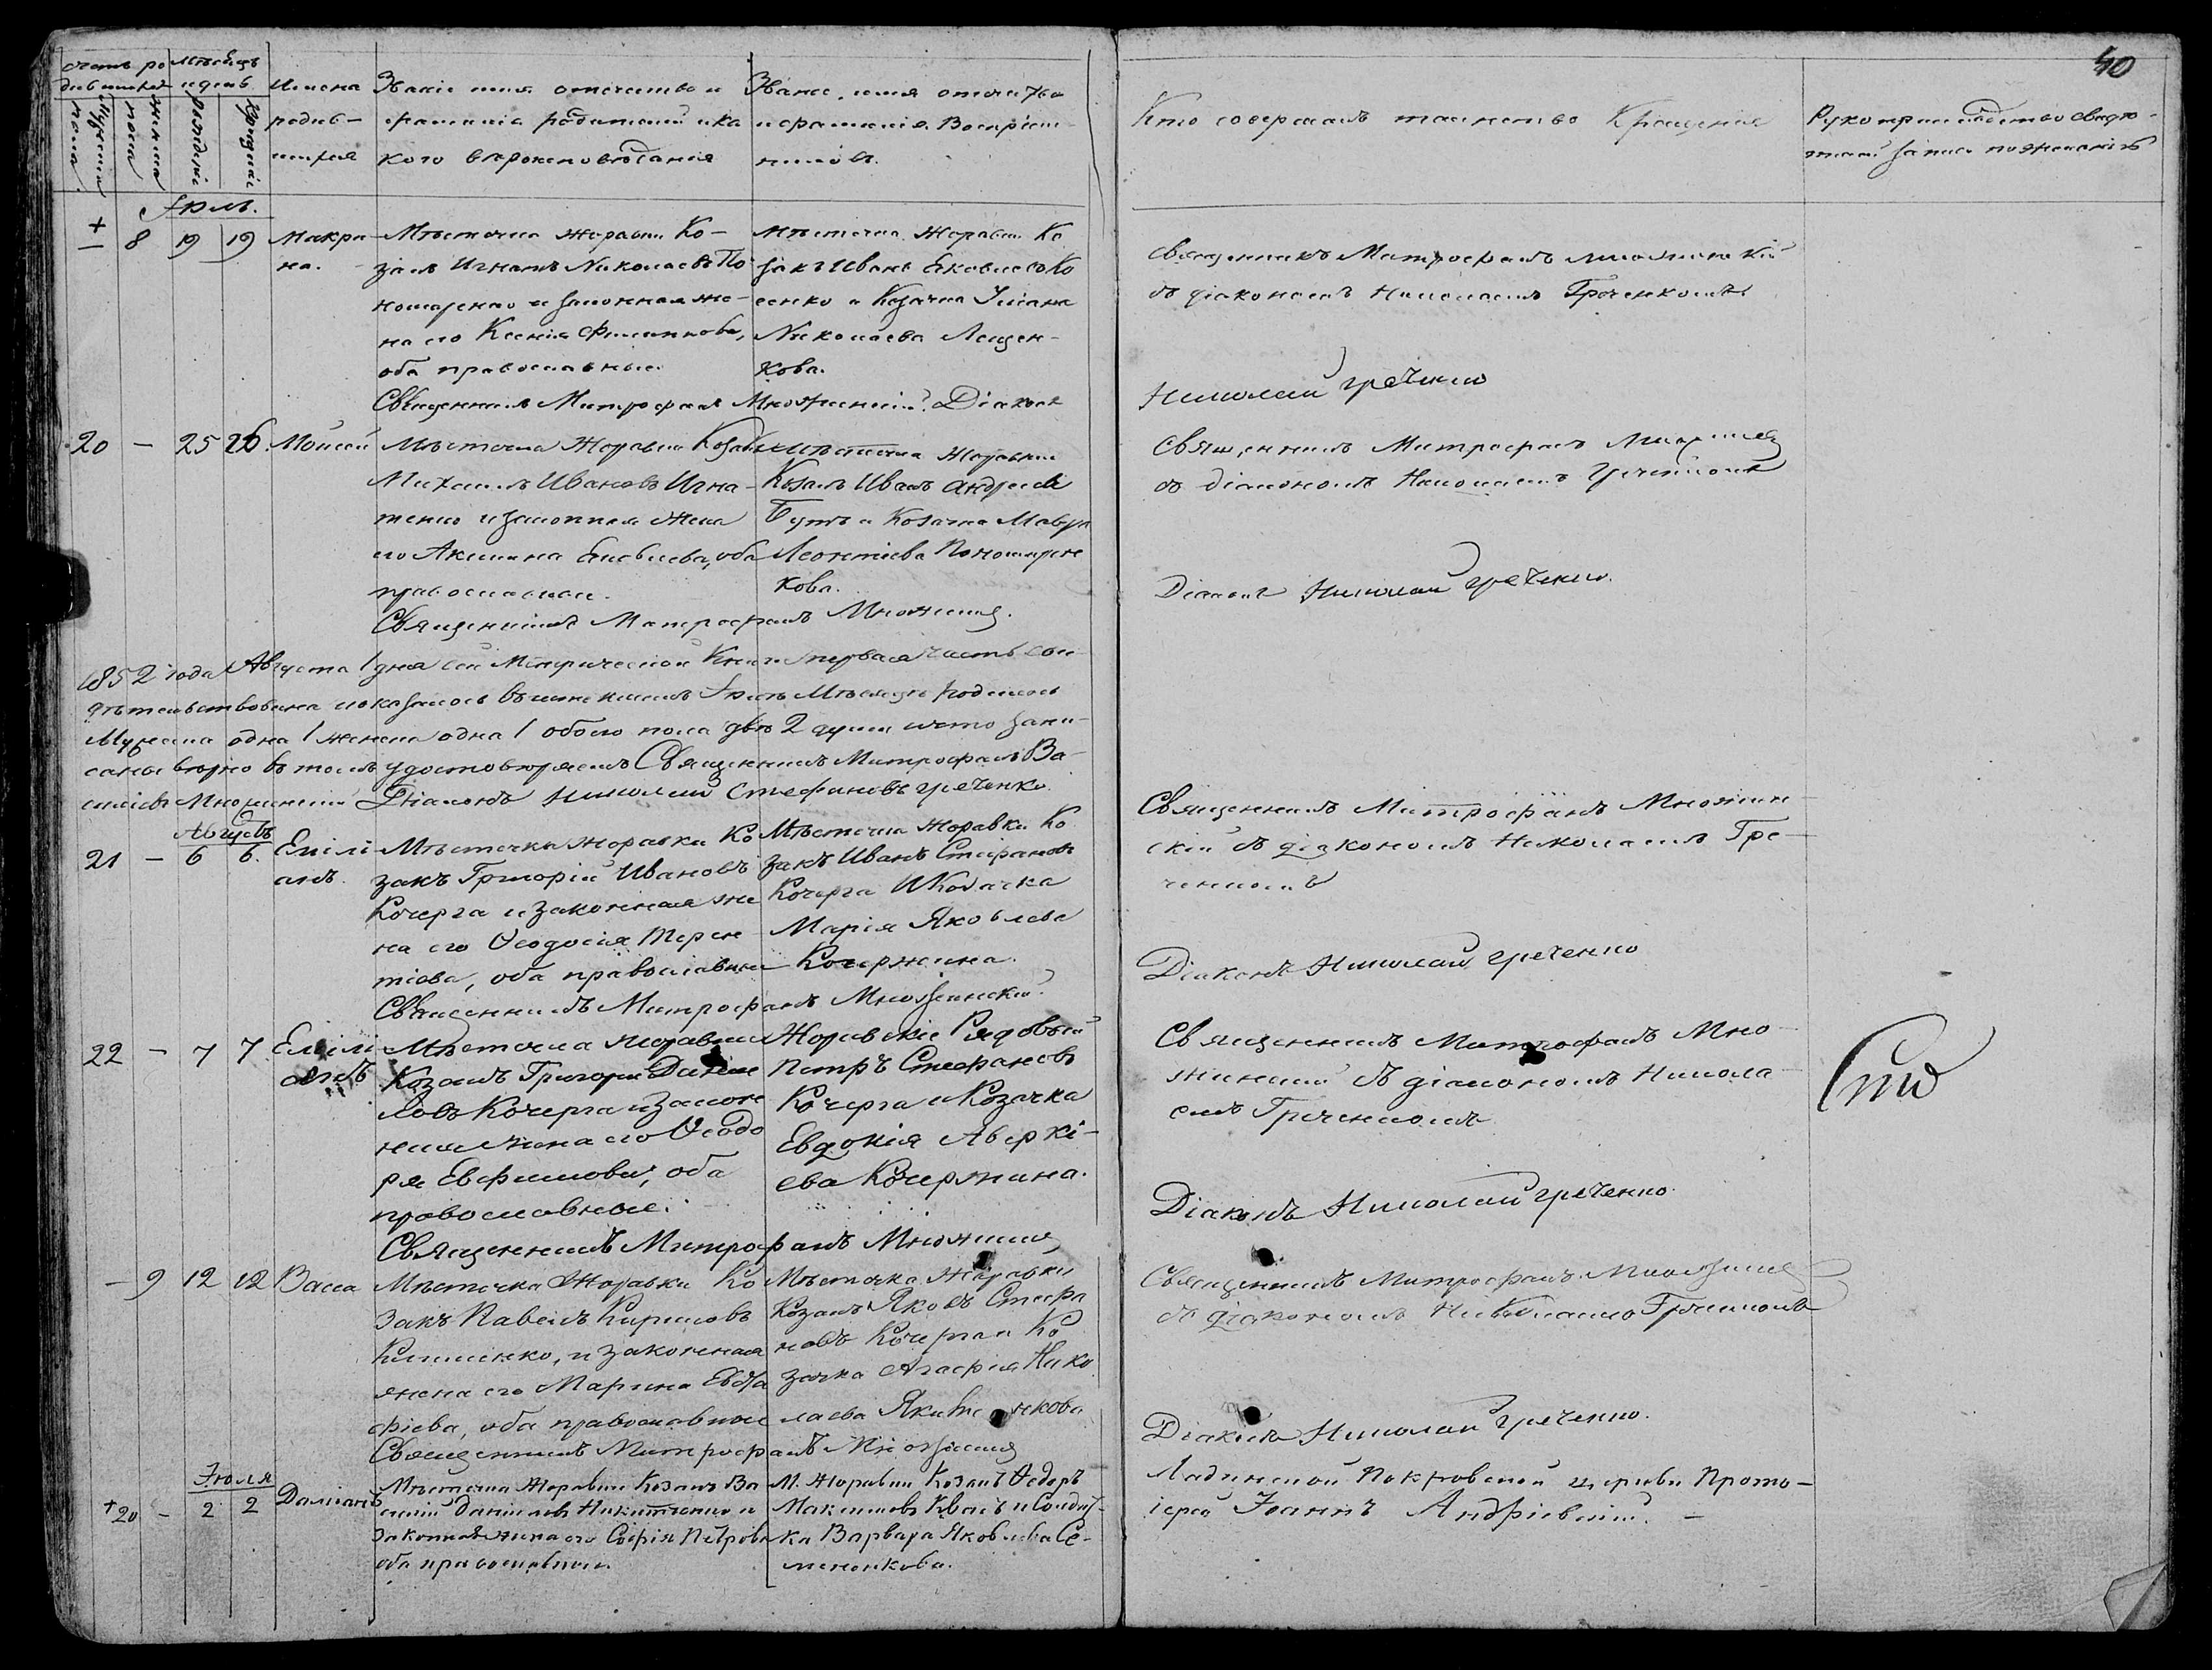 40
Счетъ ро
дившихся
Мѣсяцъ
и день
Мужеска
пола
женска
пола
рожденія
крещенія
Имена
родив-
шихся
Званіе имя отечество и
фамилія родителей и ка
кого вѣроисповѣданія
Званіе, имя отечество
и фамилія Воспріем-
никовъ.
Кто совершалъ таинство Крещенія
Рукоприкладство свидѣ-
телей записи по желанію
Іюль.
+
— 8 19 19 Макри-
на.
Мѣстечка Журавки Ко-
закъ Игнатъ Николаевъ По
номаренко и законная же-
на его Ксенія Филиппова,
оба православные.
Мѣстечка Журавки Ко
закъ Иванъ Яковлевъ Ко
сенко и Козачка Уліана
Николаева Лещен-
кова.
Священникъ Митрофанъ Множинскій. Діаконъ
Священникъ Митрофанъ Множинскій
съ діакономъ Николаемъ Греченкомъ.
Николай Греченко
20 — 25 26. Мойсей
Мѣстечка Журавки Козакъ
Михаилъ Ивановъ Игна-
тенко и законная жена
его Акилина Яковлева, оба
православные.
Мѣстечка Журавки
Козакъ Иванъ Андреевъ
Бутъ и Козачка Мавра
Леонтіева Пономарен
кова.
Священникъ Митрофанъ Множинскій.
Священникъ Митрофанъ Множинскій
съ діакономъ Николаемъ Греченкомъ
Діаконъ Николай Греченко.
1852 года Августа 1 дня сей Метрической Книги первая часть сви-
дѣтельствована и оказалось въ Іюлѣ Мѣсяцѣ родилось
Мужеска одна 1 женска одна 1 обоего пола двѣ 2 души и что запи-
саны вѣрно въ томъ удостовѣряемъ Священникъ Митрофанъ Ва-
силіевъ Множинскій Діаконъ Николай Стефановъ Греченко.
Августъ
21 — 6 6. Еміліанъ.
Мѣстечка Журавки Ко
закъ Григорій Ивановъ
Кочерга и законная же
на его Ѳеодосія Терен-
тіева, оба православные
Мѣстечка Журавки Ко
закъ Иванъ Стефановъ
Кочерга и Козачка
Марія Яковлева
Кочержина.
Священникъ Митрофанъ Множинскій.
Священникъ Митрофанъ Множин-
скій съ діакономъ Николаемъ Гре-
ченкомъ
Діаконъ Николай Греченко
22 — 7 7 Еміліанъ
Мѣстечка Журавки
Козакъ Григорій Даніи
ловъ Кочерга и закон
ная жена его Ѳеодо
ра Евфимова, оба
православные.
Журавскіе Рядовый
Петръ Стефановъ
Кочерга и Козачка
Евдокія Аверкі-
ева Кочержина.
Священникъ Митрофанъ Множинскій
Священникъ Митрофанъ Мно-
жинскій съ діакономъ Никола-
емъ Греченкомъ
Діаконъ Николай Греченко.
— 9 12 12 Васса
Мѣстечка Журавки Ко
закъ Павелъ Кириловъ
и законная
жена его Марина Евста
фіева, оба православные
Мѣстечка Журавки
Козакъ Яковъ Стефа
новъ Кочерга и Ко
зачка Агафія Нико
лаева
Священникъ Митрофанъ Множинскій
Священникъ Митрофанъ Множинскій
съ діакономъ Николаемъ Греченкомъ
Діаконъ Николай Греченко.
Іюля
+20 — 2 2 Даміанъ
Мѣстечка Журавки Козакъ Ва
силій Даніиловъ Никитченко и
законная жена его Софія Петрова
оба православные.
М. Журавки Козакъ Ѳедоръ
Максимовъ Квасъ и Солдат-
ка Варвара Яковлева Се-
мененкова.
Ладинской Покровской церкви Прото-
іерей Іоаннъ Андріевскій. —